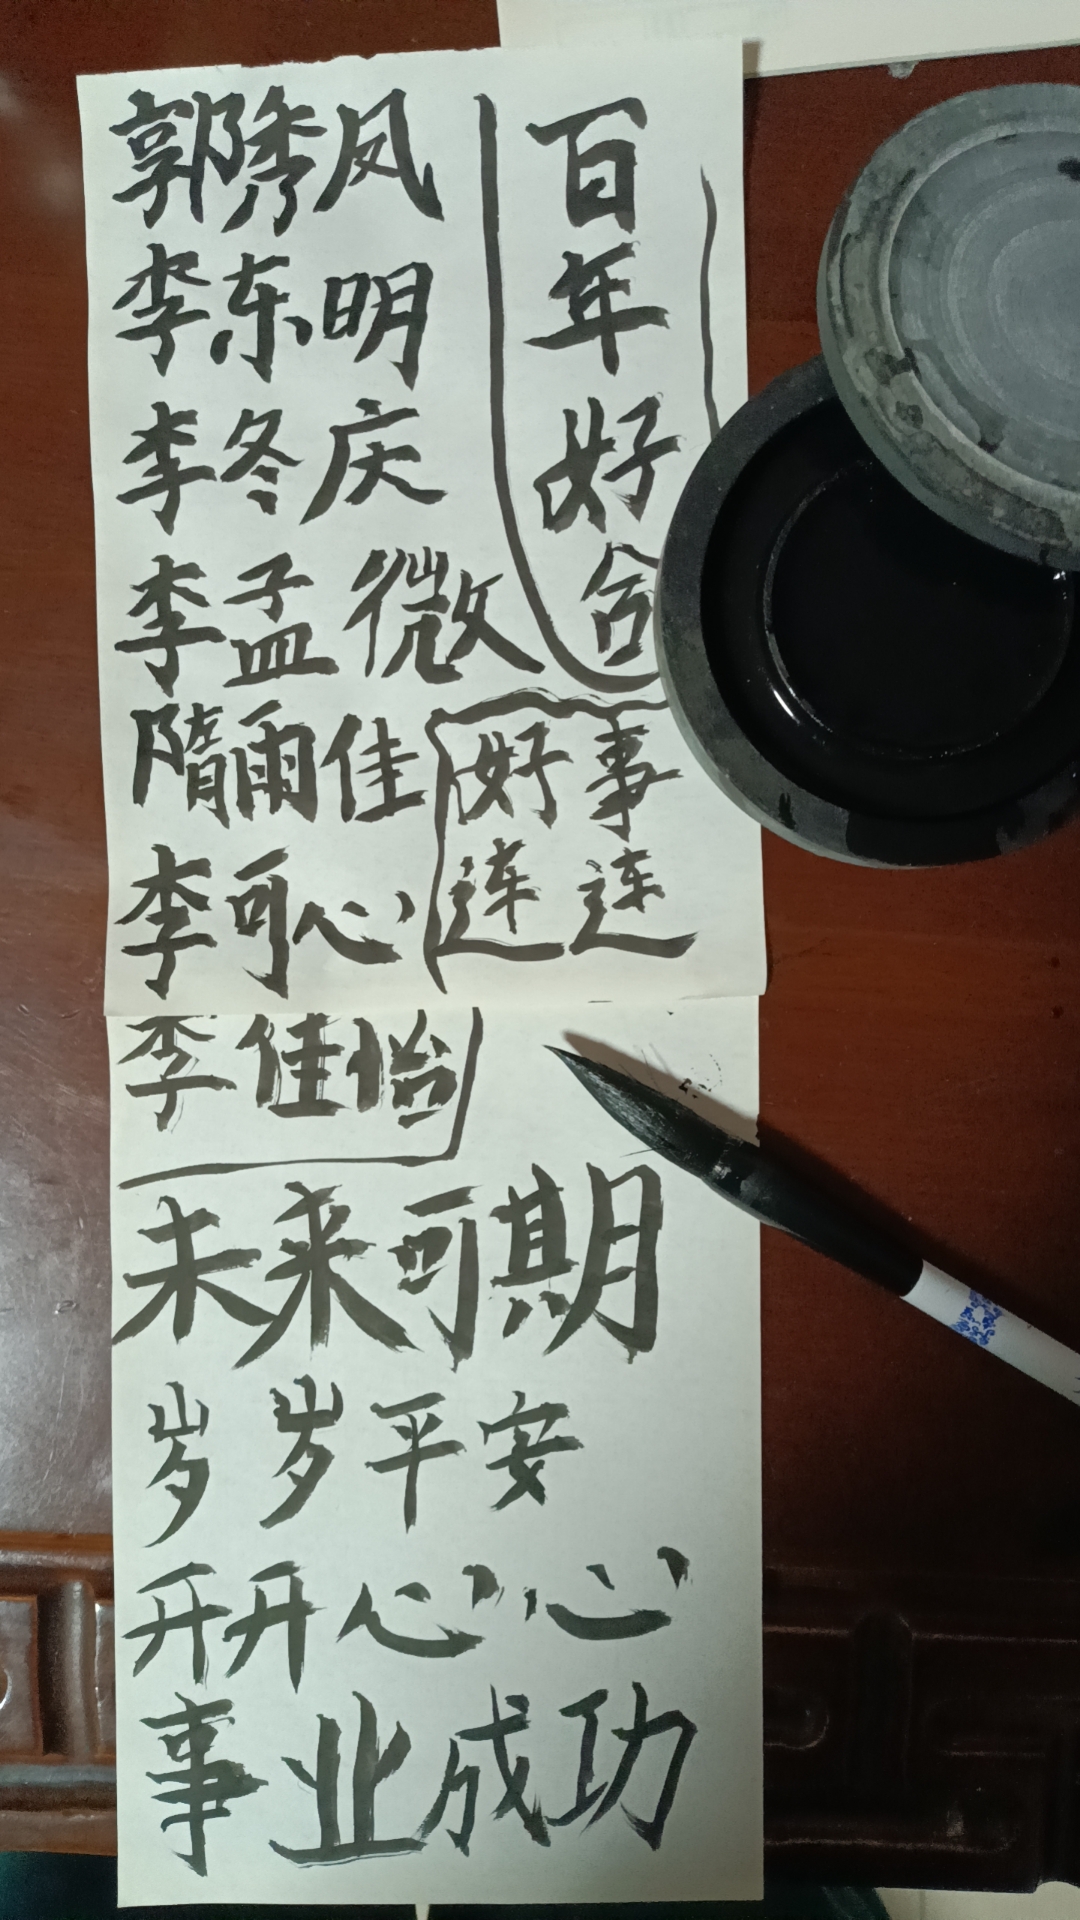 郭隽凤
李东明
李冬庆
李孟微
隋雨佳
李可心
李佳怡
百年好合
好事
连连
未来可期
岁岁平安
开开心心
事业成功